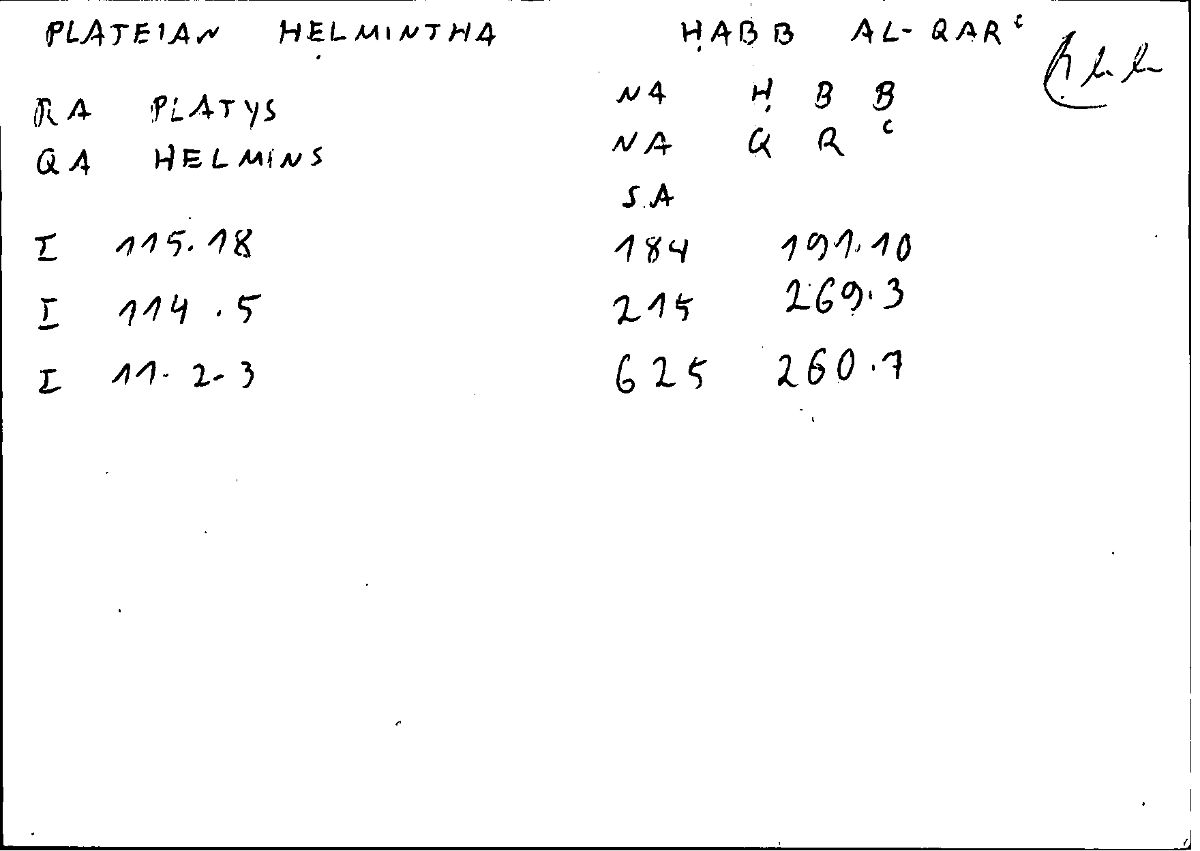 PLATEIAN HELMINTHA ḤABB AL-QARʿ
RA PLATYS NA Ḥ B B
QA HELMINS NA Q R ʿ
SA
I 115.18 184 191.10
I 114.5 215 269.3
I 11.2-3 625 260.7